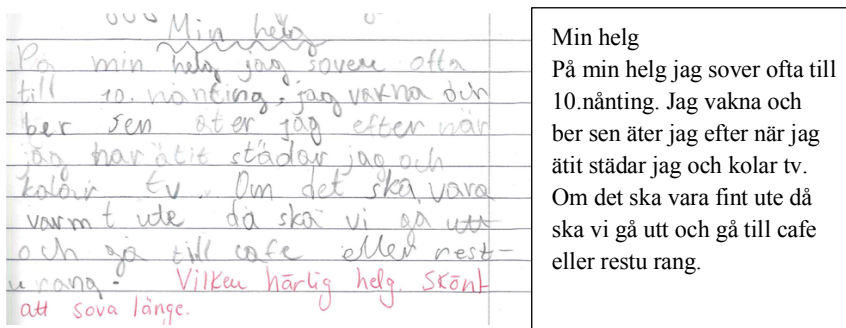 Min helg
På min helg jag sover ofta
till 10. nånting, jag vakna och
ber sen äter jag efter när
jag har ätit städar jag och
kolar tv. Om det ska vara
varmt ute då ska vi gå utt
och gå till cafe eller rest-
urang. Vilken härlig helg. Skönt
att sova länge.
Min helg
På min helg jag sover ofta till
10.nånting. Jag vakna och
ber sen äter jag efter när jag
ätit städar jag och kolar tv.
Om det ska vara fint ute då
ska vi gå utt och gå till cafe
eller restu rang.